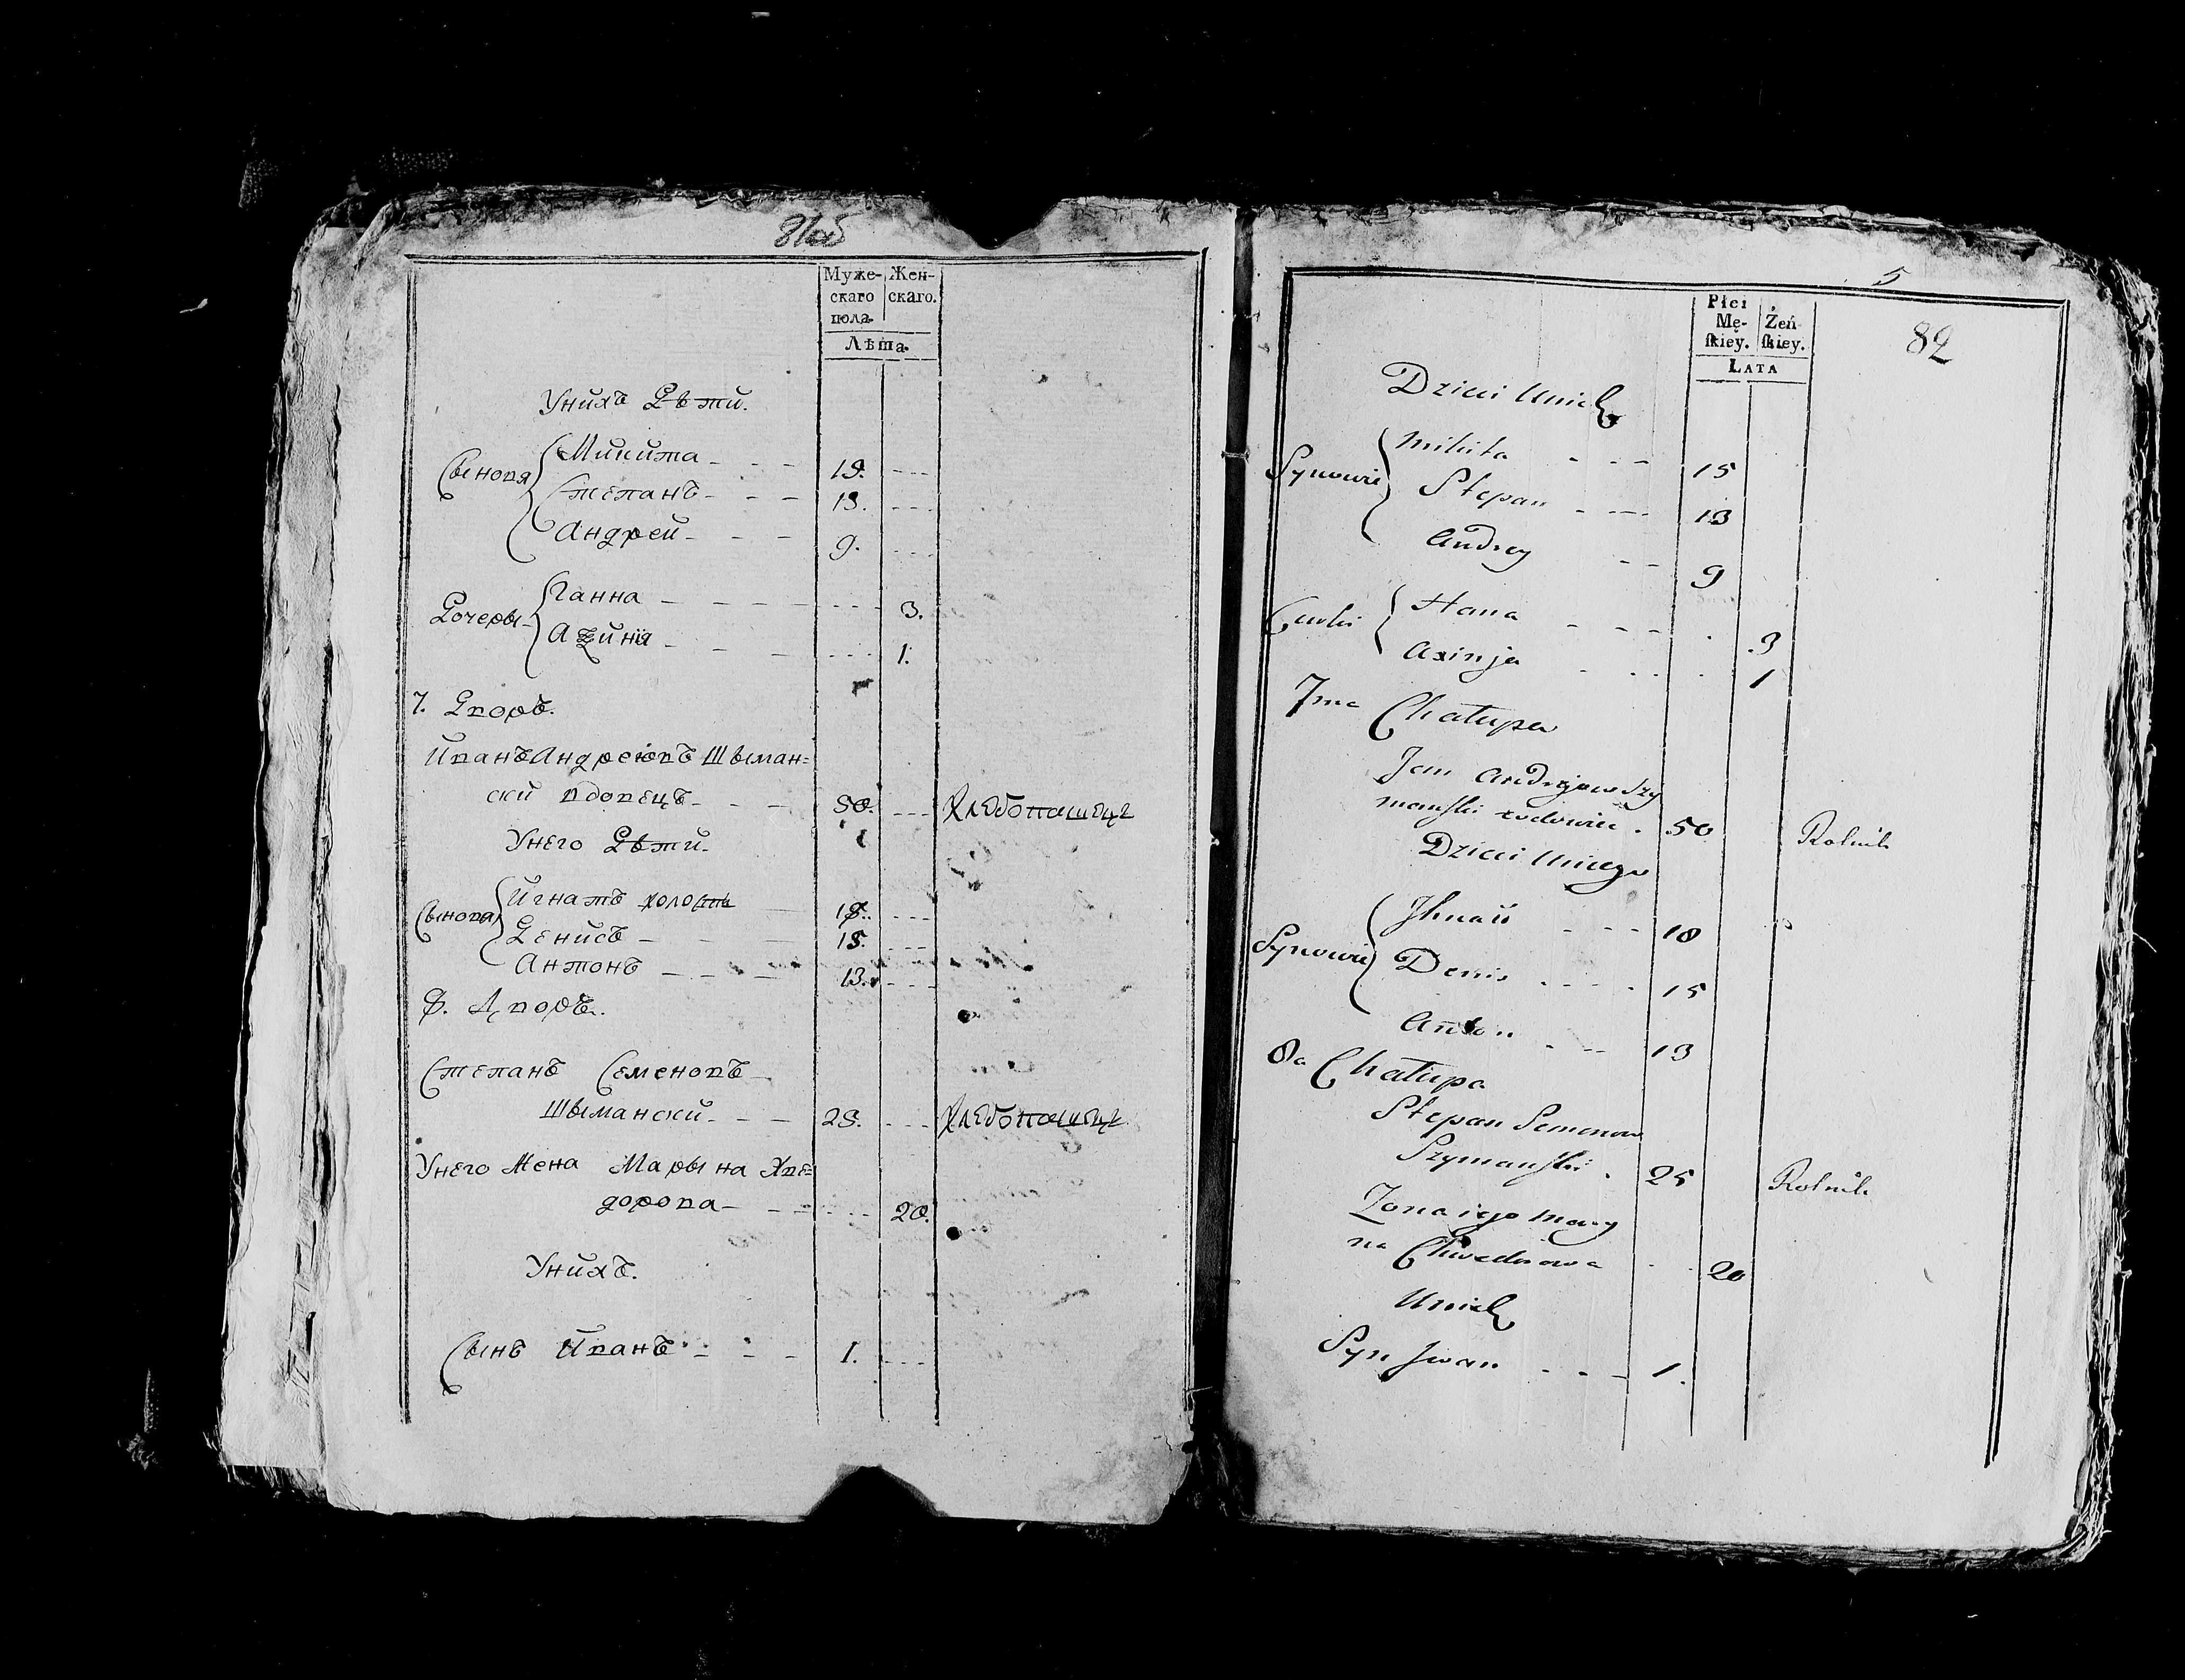 81об
Муже- Жен-
скаго скаго.
пола.
Лѣта.
Унихъ Дѣти.
Сыновя Микита 15.
Степанъ 13.
Андрей 9.
Дочеры Ганна 3.
Аѯиния 1.
7. Дворъ.
Иванъ Андреювъ Шыман=
ски вдовецъ 50. Хлебопашецъ
Унего Дѣти.
Сынова Игнатъ холостъ 18.
Денисъ 15.
Антонъ 13.
8. Дворъ.
Степанъ Семеновъ
Шыманский 25. Хлебопашецъ
Унего Жена Марына Хве=
дорова 20.
Унихъ.
Сынъ Иванъ 1.
5
82
Płci
Mę- Żeń-
ſkiey. ſkiey.
LATA
Dzieci Unich
Synowie Mikita 15
Stepan 13
Andrey 9
Curki Hana 3
Axinja 1
7ma Chałupa
Jan Andrejow Szy
manski wdowiec 50 Rolnik
Dzieci Uniego
Synowie Ihnaći 18
Denis 15
Anton 13
8a Chałupa
Stepan Semenow
Szymanski 25 Rolnik
Zona iego Mary
na Chwedorowa 20
Unich
Syn Iwan 1.